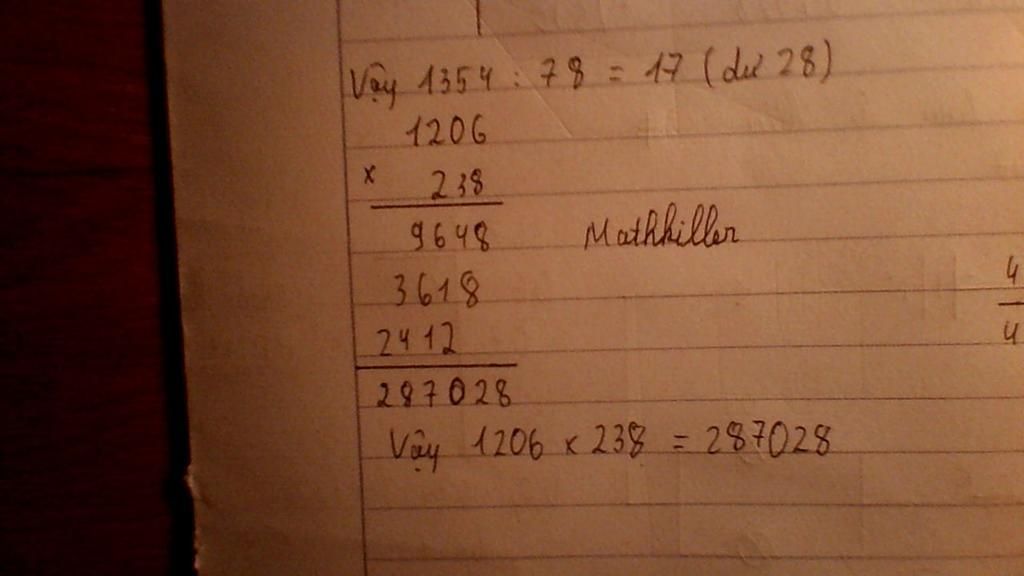 Vậy 1354 : 78 = 17 (dư 28)
1206
x 238
9648
Mathkiller
3618
2412
287028
Vậy 1206 x 238 = 287028
4
4